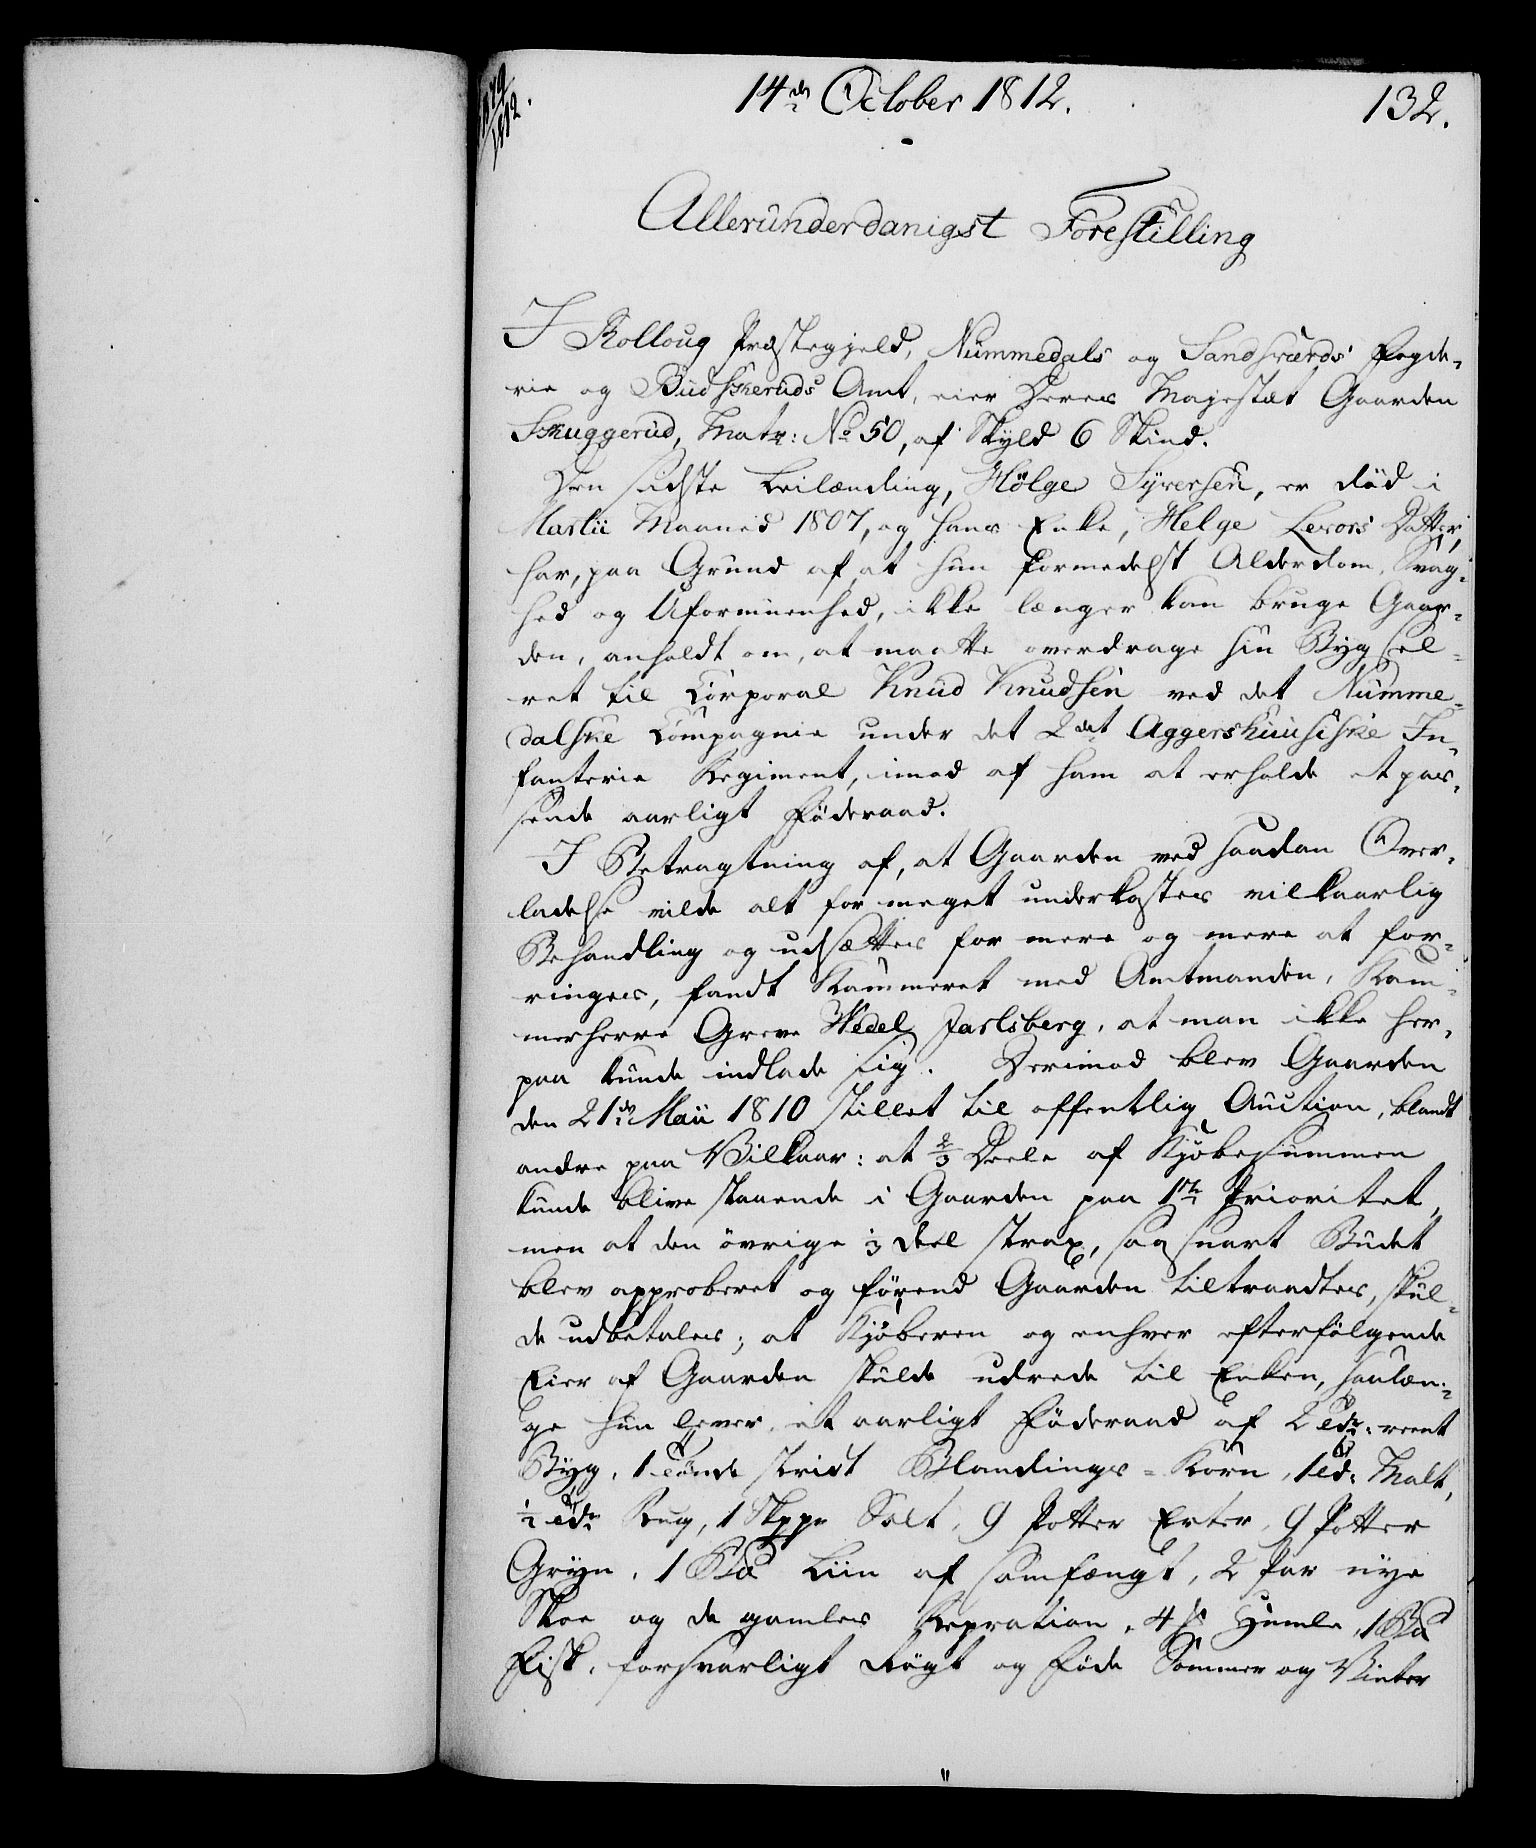 1812.
14de October 1812.
132.
Allerunderdanigst Forestilling
I Rolloug Præstegjeld, Nummedals og Sandsværds Fogde-
rie og Budskeruds Amt, eier Deres Majestæt Gaarden
Skuggerud, Matr: No 50, af Skyld 6 Skind.
Den sidste Leilænding, Hølge Syversen, er död i
Martii Maaned 1807, og hans Enke, Helge Levors Datter,
har, paa Grund af, at hun formedelst Alderdom, Svag-
hed og Uformuenhed, ikke længer kan bruge Gaar-
den, anholdt om, at maatte overdrage sin Bygsel-
ret til Corporal Knud Knudsen ved det Numme-
dalske Compagnie under det 2det Aggershuusiske In-
fanterie Regiment, imod af ham at erholde et pas-
sende aarligt Föderaad.
I Betragtning af, at Gaarden ved saadan Over-
ladelse vilde alt for meget underkastes vilkaarlig
Behandling og udsættes for mere og mere at for-
ringes, fandt Kammeret med Amtmanden, Kam-
merherre Greve Wedel Jarlsberg, at man ikke her-
paa kunde indlade sig. Derimod blev Gaarden
den 21de Maii 1810 stillet til offentlig Auction, blandt
andre paa Vilkaar: at 2/3 Deele af Kjöbesummen
kunde blive staaende i Gaarden paa 1ste Prioritet,
men at den övrige 1/3 Deel strax, saasnart Budet
blev approberet og förend Gaarden tiltraadtes, skul-
de udbetales; at Kjöberen og enhver efterfölgende
Eier af Gaarden skulde udrede til Enken, saalæn-
ge hun lever, et aarligt Föderaad af 2 Tdr: reent
Byg, 1 Tönde skriet Blandings-Korn, 1 Td: Malt,
1/2 Tde Rug, 1 Skppe Salt, 9 Potter Erter, 9 Potter
Gryn, 1 Bpd Liin af samfængt, 2 Par nye
Skoe og de gamles Repration, 4 Humle, 1 Bpd
Fisk, forsvarligt Rögt og Föde Sommer og Vinter